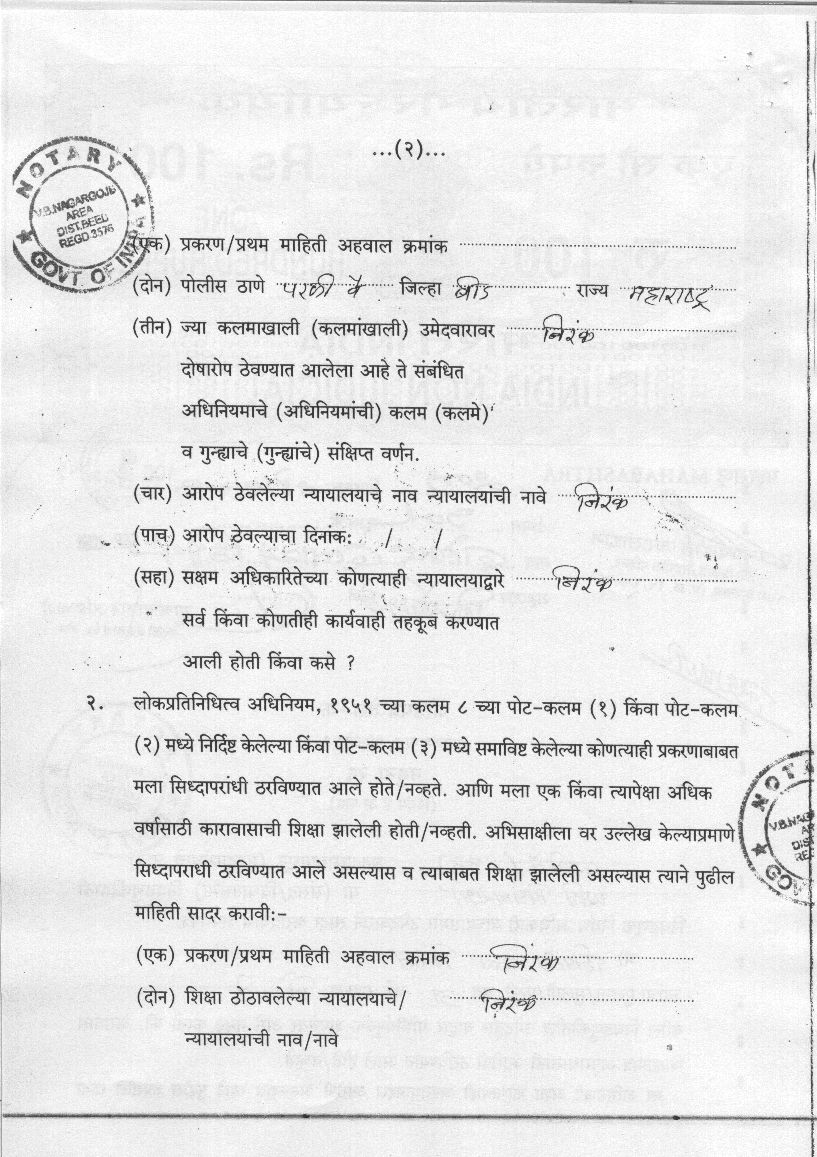 ...(२)...
NOTARY
V.B.NAGARGOJE
AREA
DIST.BEED
REGD.3576
GOVT OF INDIA
(एक) प्रकरण/प्रथम माहिती अहवाल क्रमांक
(दोन) पोलीस ठाणे परळी वै जिल्हा बीड राज्य महाराष्ट्र
(तीन) ज्या कलमाखाली (कलमांखाली) उमेदवारावर निरंक
दोषारोप ठेवण्यात आलेला आहे ते संबंधित
अधिनियमाचे (अधिनियमांची) कलम (कलमे)
व गुन्ह्याचे (गुन्ह्यांचे) संक्षिप्त वर्णन.
(चार) आरोप ठेवलेल्या न्यायालयाचे नाव न्यायालयांची नावे निरंक
(पाच) आरोप ठेवल्याचा दिनांक: / /
(सहा) सक्षम अधिकारितेच्या कोणत्याही न्यायालयाद्वारे निरंक
सर्व किंवा कोणतीही कार्यवाही तहकूब करण्यात
आली होती किंवा कसे ?
२. लोकप्रतिनिधित्व अधिनियम, १९५१ च्या कलम ८ च्या पोट-कलम (१) किंवा पोट-कलम
(२) मध्ये निर्दिष्ट केलेल्या किंवा पोट-कलम (३) मध्ये समाविष्ट केलेल्या कोणत्याही प्रकरणाबाबत
मला सिध्दापराधी ठरविण्यात आले होते/नव्हते. आणि मला एक किंवा त्यापेक्षा अधिक
वर्षासाठी कारावासाची शिक्षा झालेली होती/नव्हती. अभिसाक्षीला वर उल्लेख केल्याप्रमाणे
सिध्दापराधी ठरविण्यात आले असल्यास व त्याबाबत शिक्षा झालेली असल्यास त्याने पुढील
माहिती सादर करावी:-
(एक) प्रकरण/प्रथम माहिती अहवाल क्रमांक निरंक
(दोन) शिक्षा ठोठावलेल्या न्यायालयाचे/ निरंक
न्यायालयांची नाव/नावे